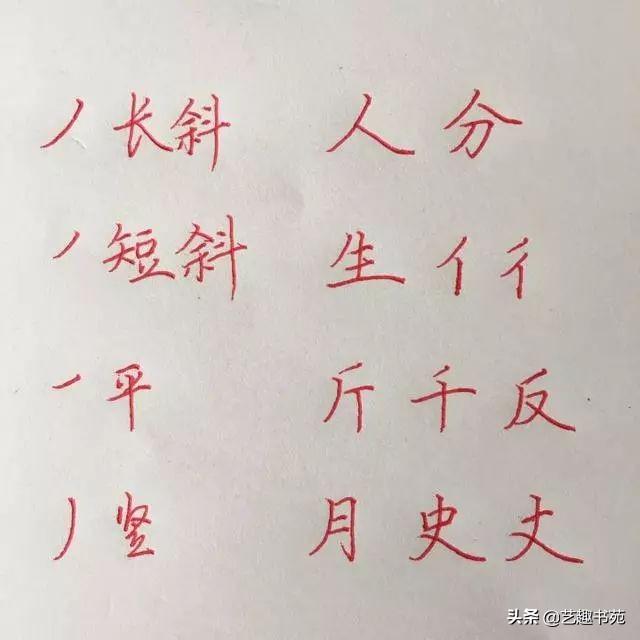 丿 长斜 人 分
丿 短斜 生 亻 彳
㇒ 平 斤 千 反
丿 竖 月 史 丈
头条 @艺趣书苑